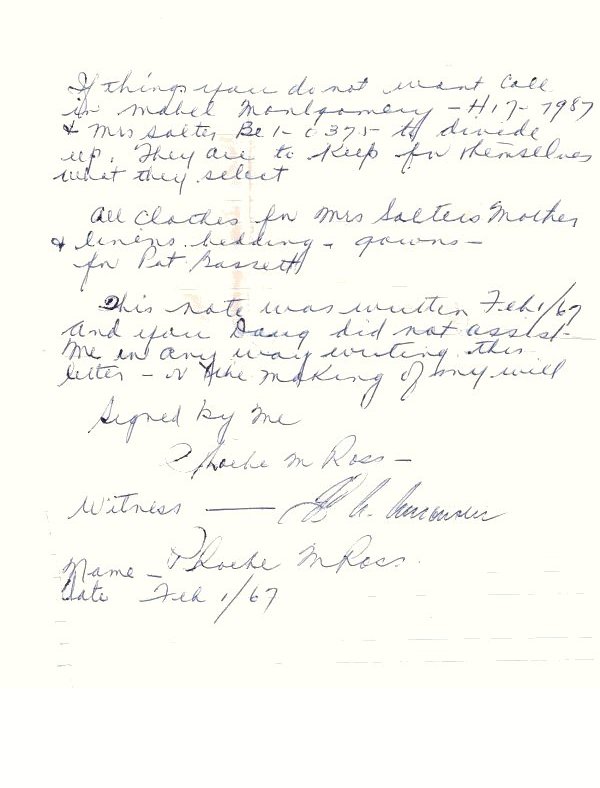 If things you do not want call
in Mabel Montgomery - H17-7987
& Mrs Salter Be 1-0375- to divide
up. They are to keep for themselves
what they select
All clothes for Mrs Salters Mother
& linens, bedding - gowns -
for Pat Bassett
This note was written Feb 1/67
and you Doug did not assist
me in any way writing this
letter - or the making of my will
Signed by me
Phoebe M Ross -
Witness
Name - Phoebe M Ross.
Date Feb 1/67